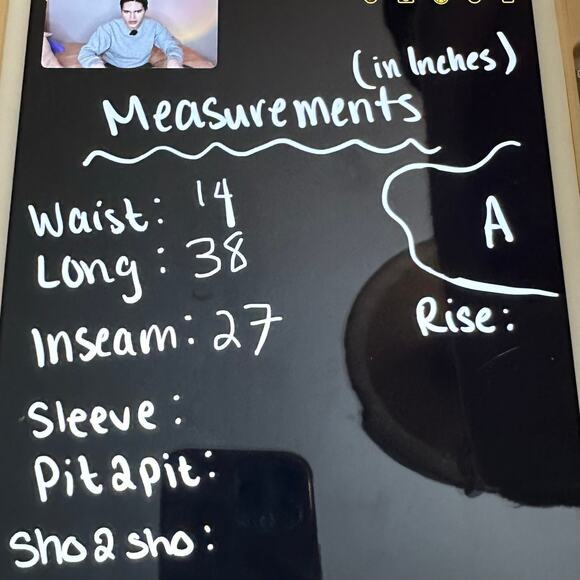 (in Inches)
Measurements
Waist: 14
Long: 38
Inseam: 27
A
Rise:
Sleeve:
Pit2pit:
Sho2sho: